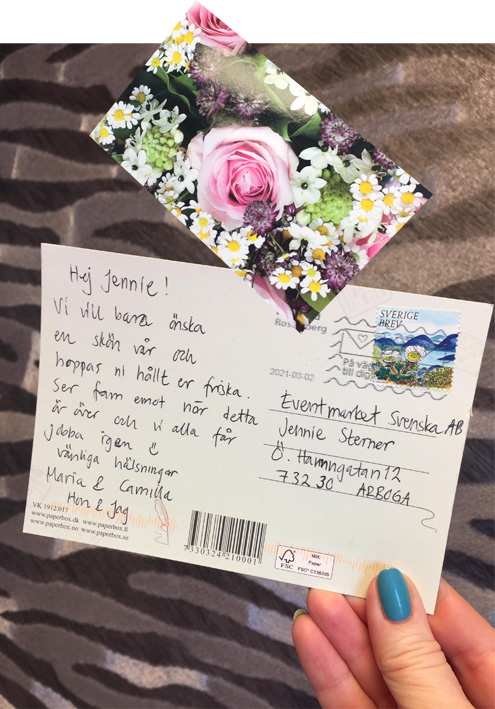 Hej Jennie!
Vi vill bara önska
en skön vår och
hoppas ni hållt er friska.
Ser fam emot när detta
är över och vi alla får
jobba igen
vänliga hälsningar
Maria & Camilla
Hon & Jag
VK 1912.017
www.paperbox.dk www.paperbox.fi
www.paperbox.no www.paperbox.se
7330324210001
MIX
Paper
FSC
FSC® C136335
SVERIGE
BREV
2021-03-02
Eventmarket Svenska AB
Jennie Sterner
Ö. Hamngatan 12
732 30 ARBOGA